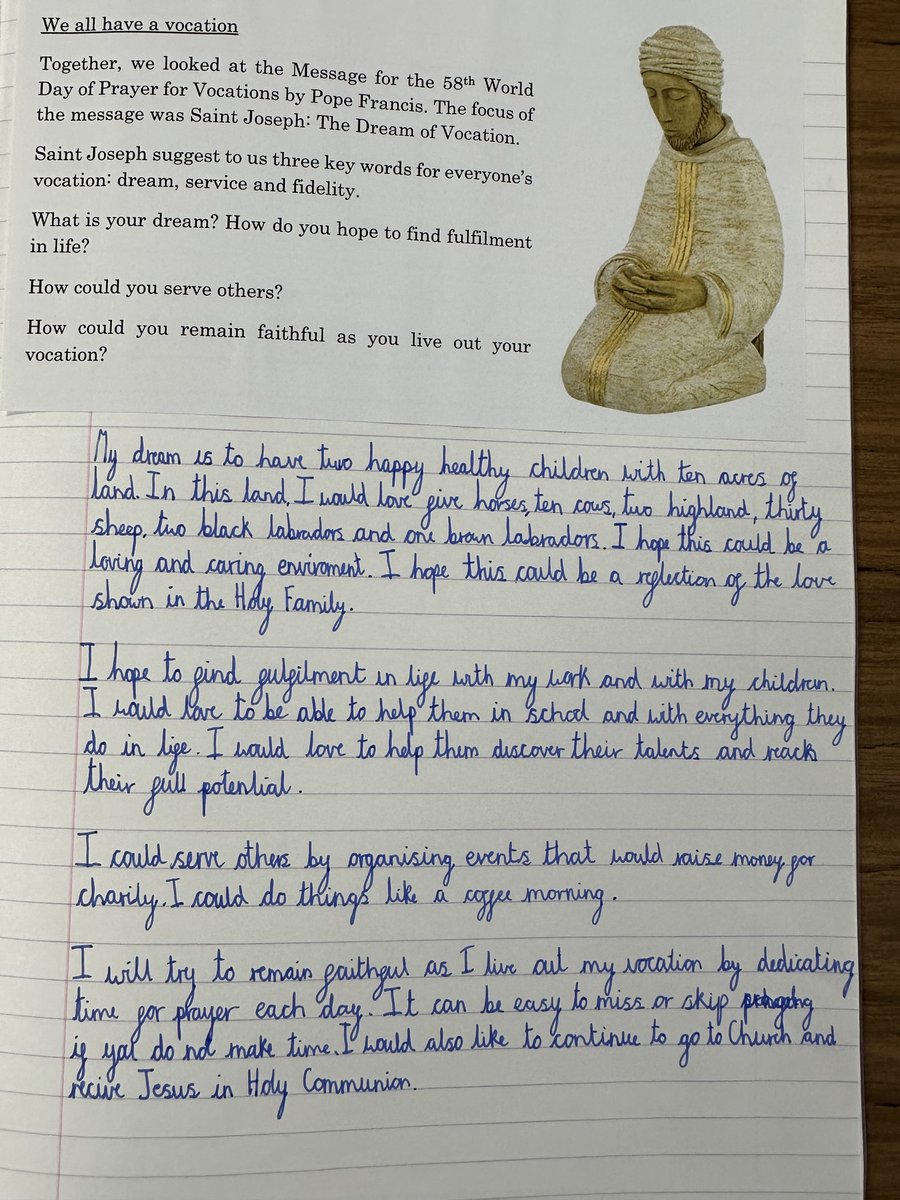 We all have a vocation
Together, we looked at the Message for the 58th World
Day of Prayer for Vocations by Pope Francis. The focus of
the message was Saint Joseph: The Dream of Vocation.
Saint Joseph suggest to us three key words for everyone's
vocation: dream, service and fidelity.
What is your dream? How do you hope to find fulfilment
in life?
How could you serve others?
How could you remain faithful as you live out your
vocation?
My dream is to have two happy healthy children with ten acres of
land. In this land, I would love five horses, ten cows, two highland, thirty
sheep, two black labradors and one brown labradors. I hope this could be a
loving and caring enviroment. I hope this could be a reflection of the love
shown in the Holy Family.
I hope to find fulfilment in life with my work and with my children.
I would love to be able to help them in school and with everything they
do in life. I would love to help them discover their talents and reach
their full potential.
I could serve others by organising events that would raise money for
charity. I could do things like a coffee morning.
I will try to remain faithful as I live out my vocation by dedicating
time for prayer each day. It can be easy to miss or skip
if do not make time. I would also like to continue to go to Church and
recive Jesus in Holy Communion.